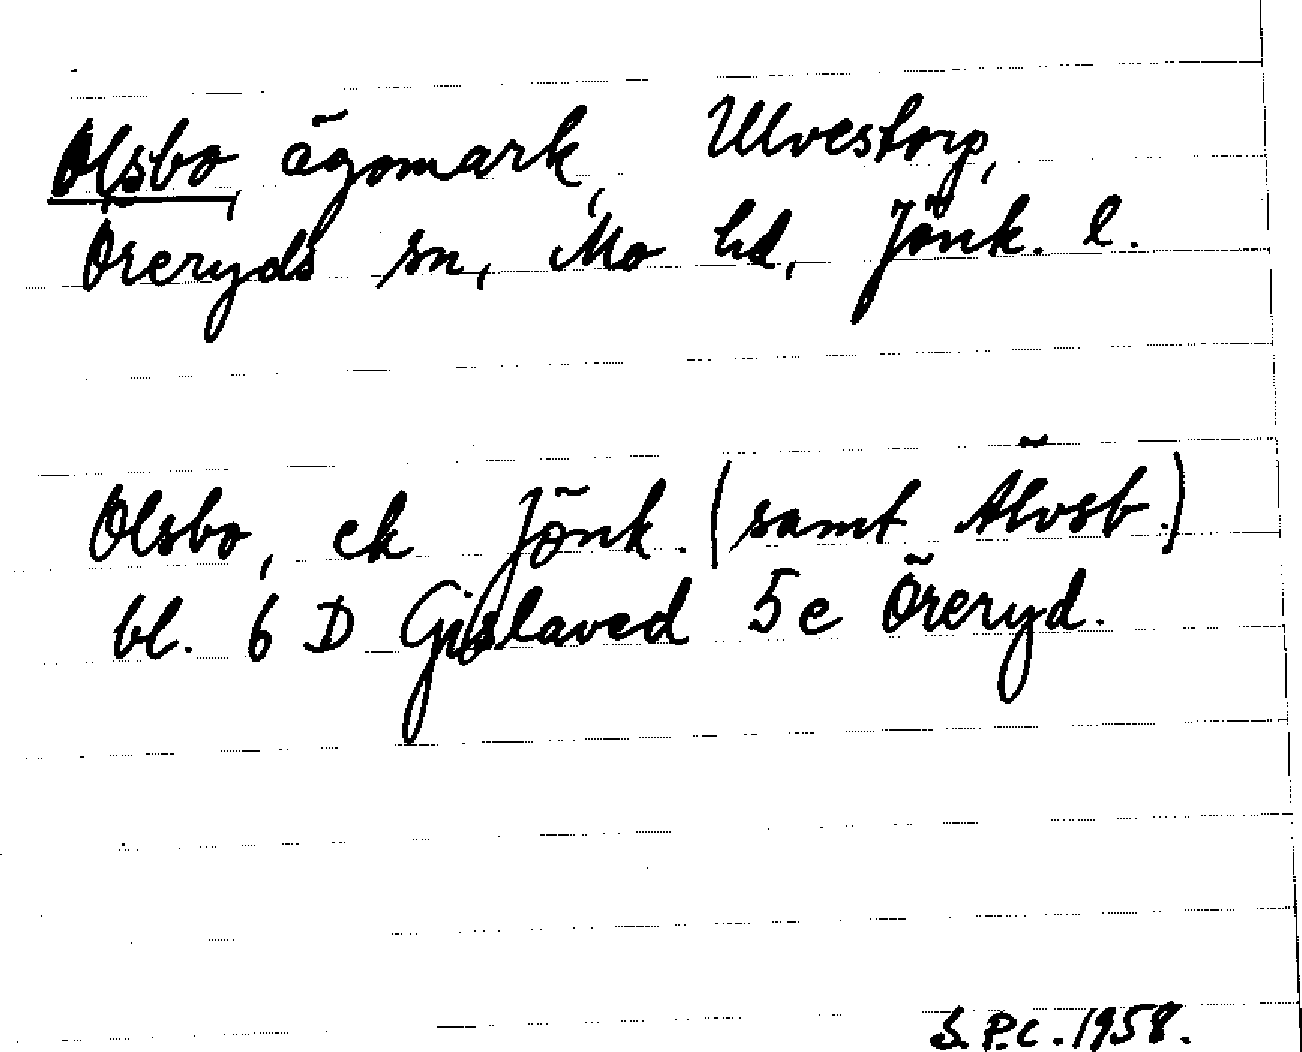 Olsbo, ägomark, Ulvestorp,
Öreryds sn, Mo hd, Jönk. l.
Olsbo, ek Jönk. (samt Älvsb.)
bl. 6 D Gislaved 5e Öreryd.
S.P.C. 1958.